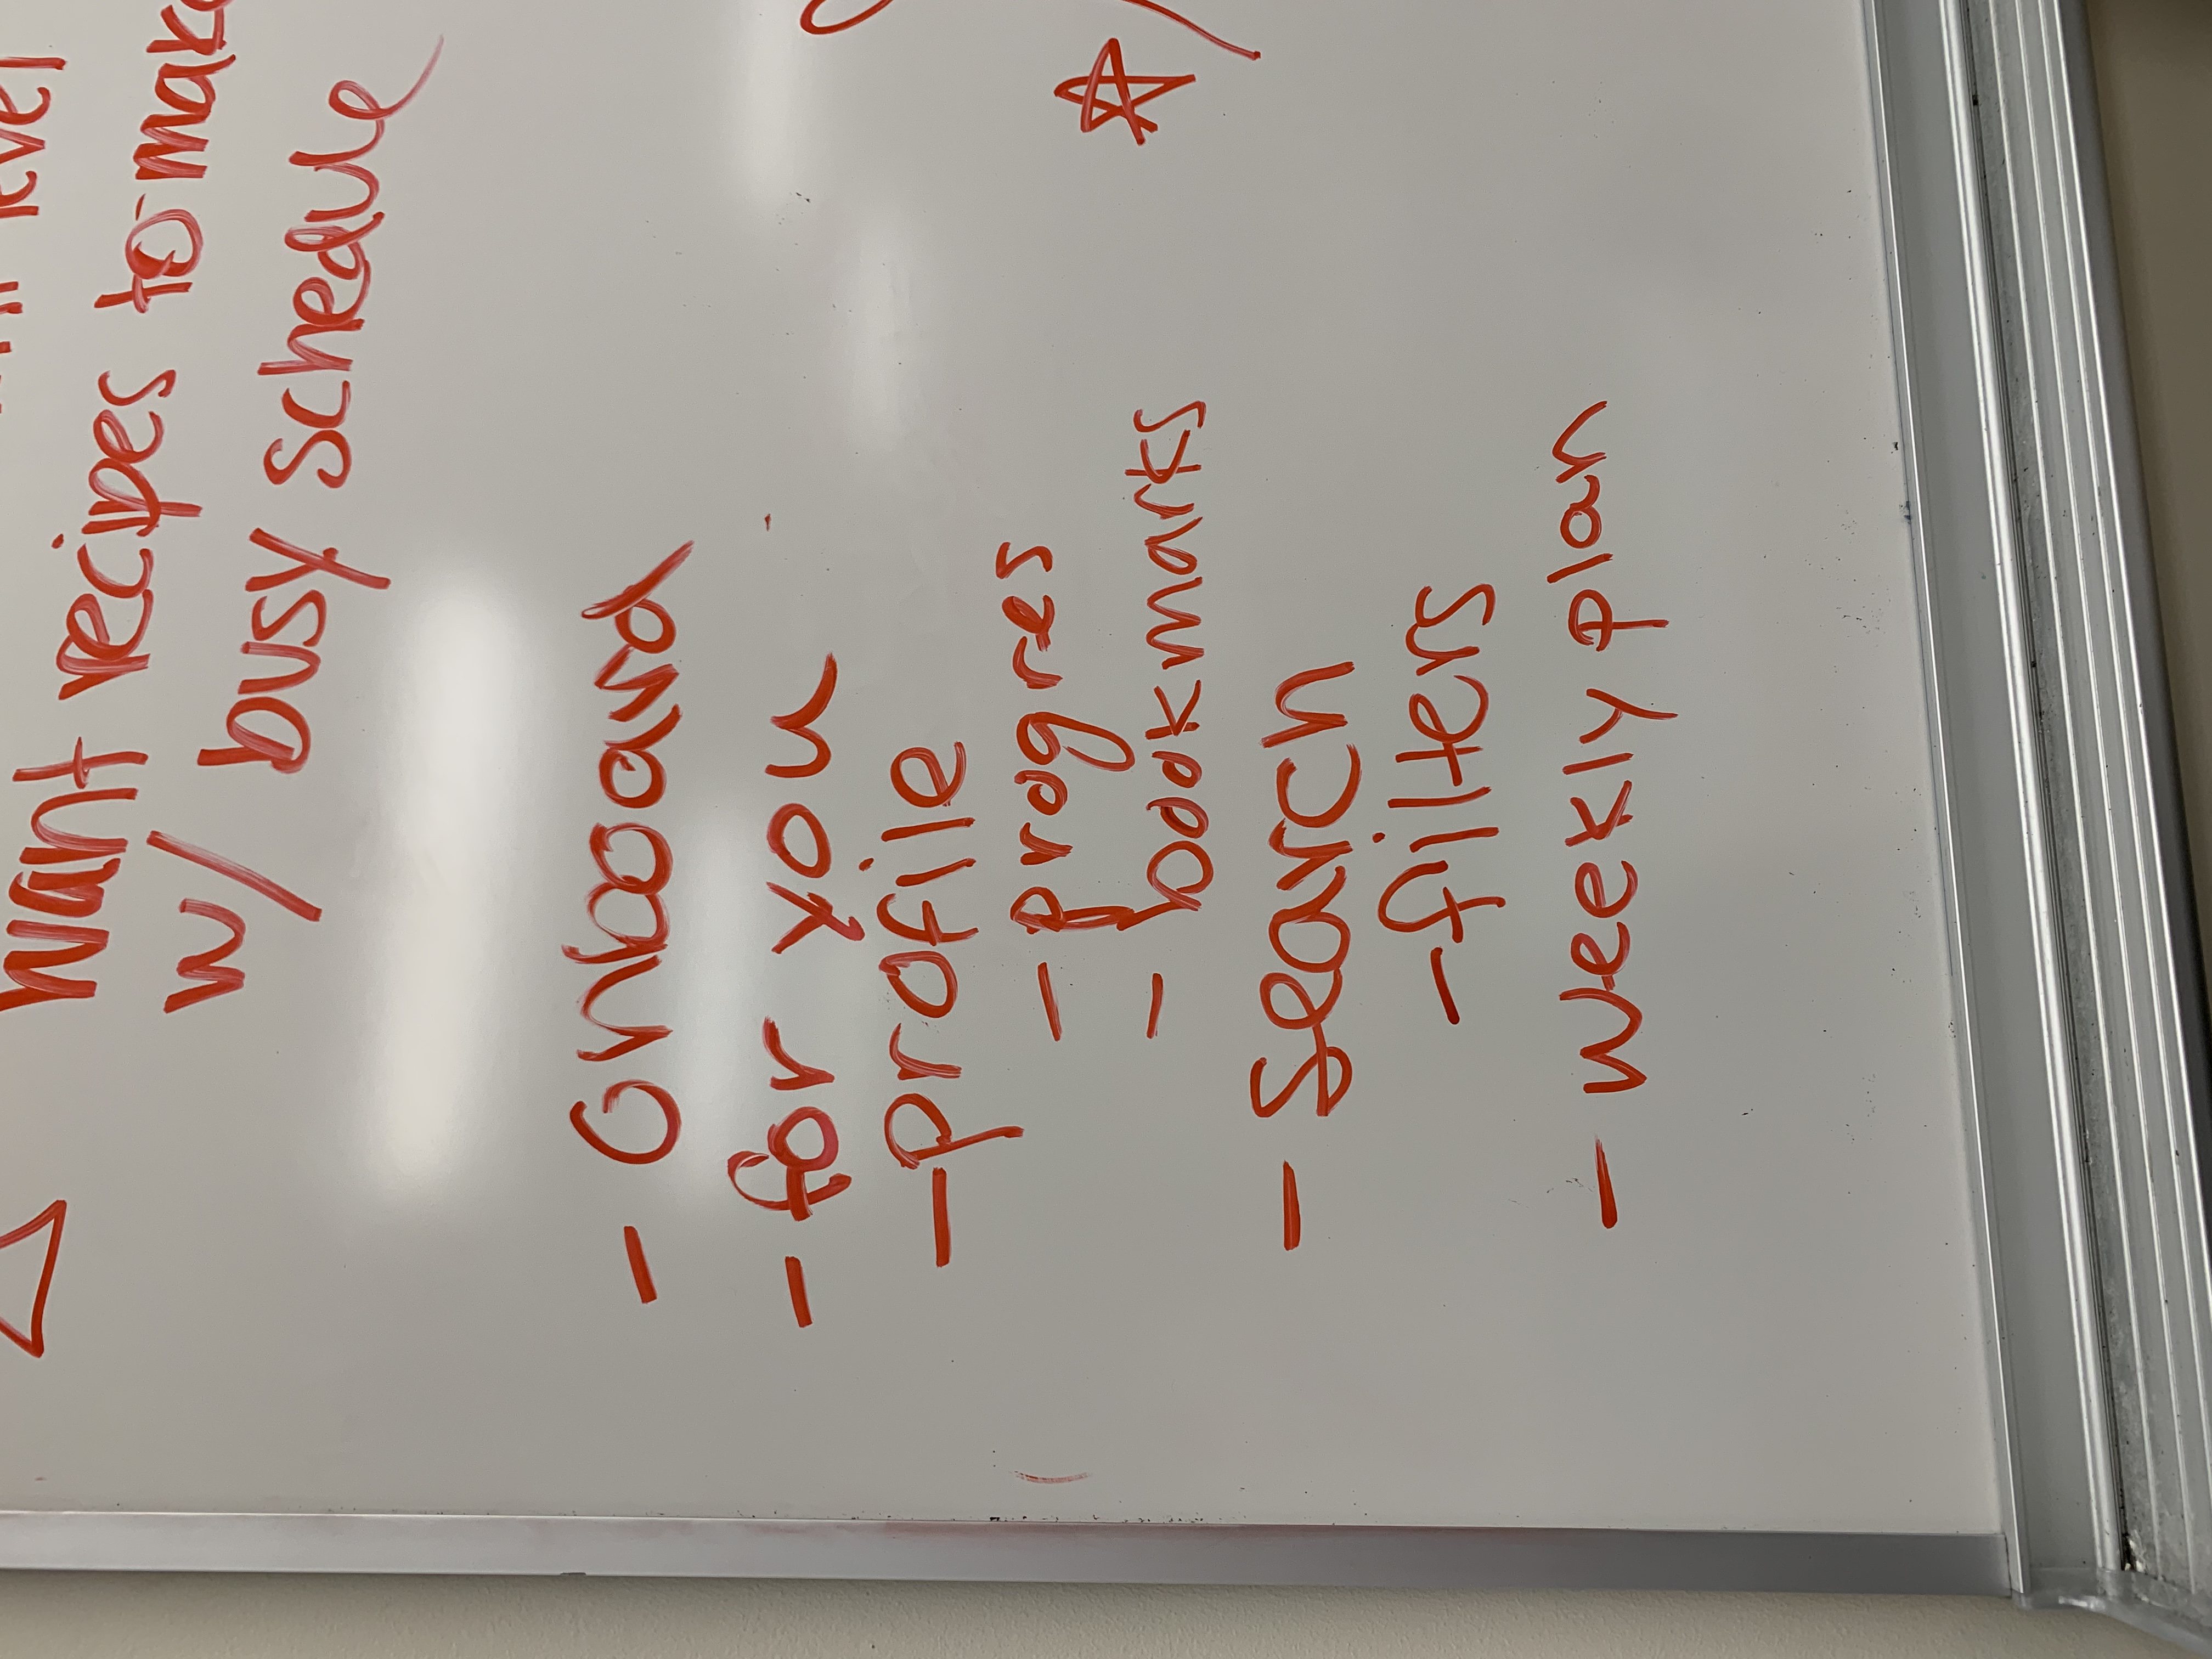 level
want recipes to make
w/ busy schedule
- onboard
- for you
- profile
- progres
- bookmarks
- search
- filters
- weekly plan